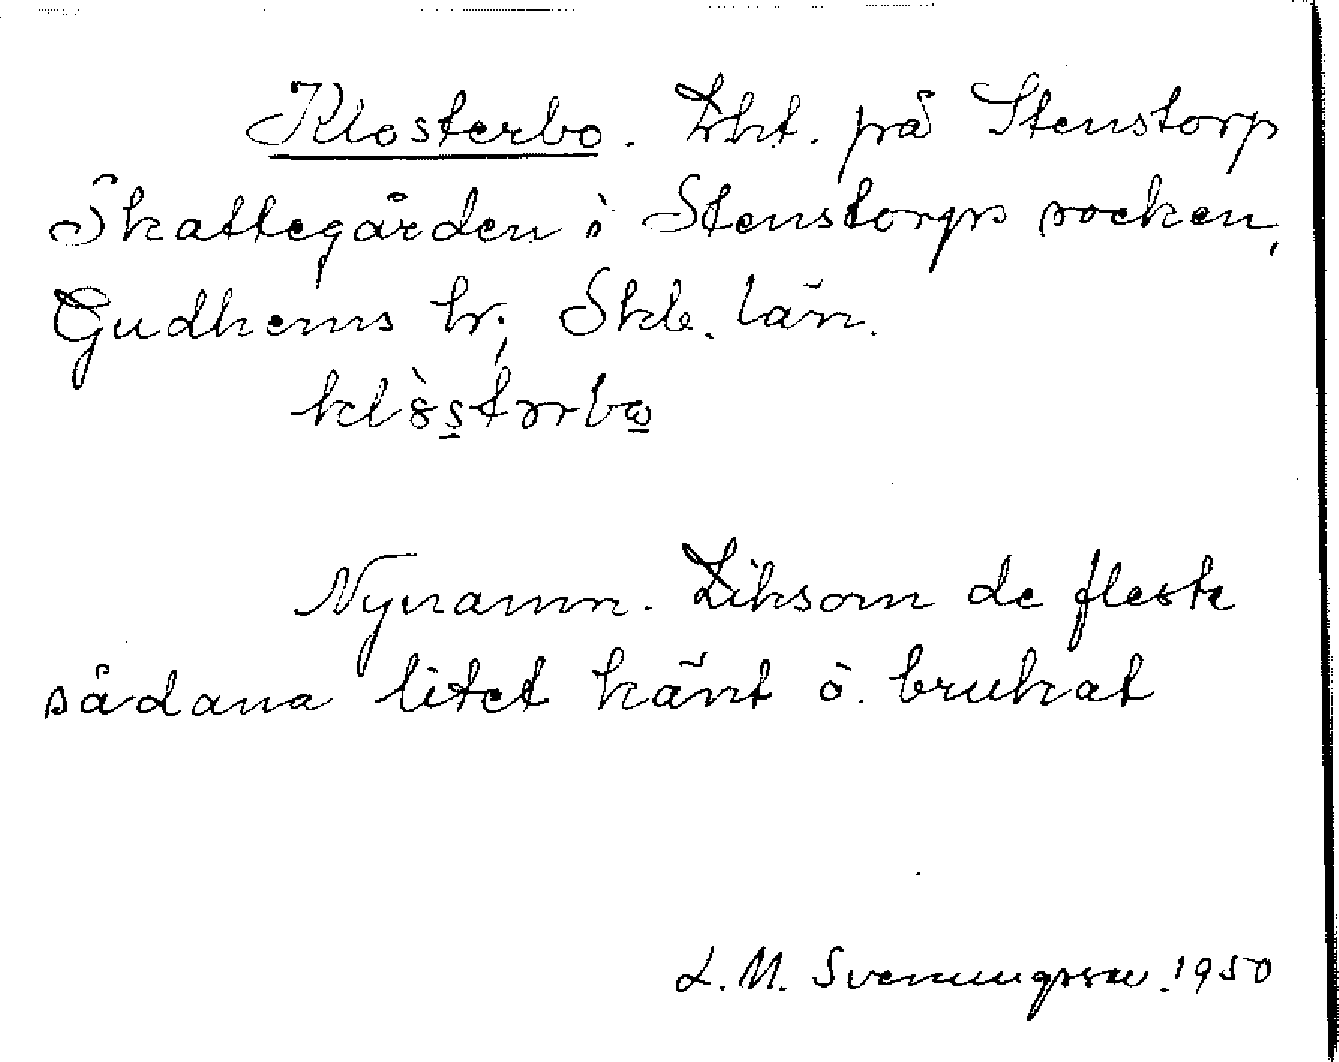 Klosterbo. Lht. på Stenstorp
Skattegården i Stenstorps socken,
Gudhems hr, Skb. län.
Nynamn. Liksom de flesta
sådana litet känt o. brukat
L. M. Svenungsson. 1950